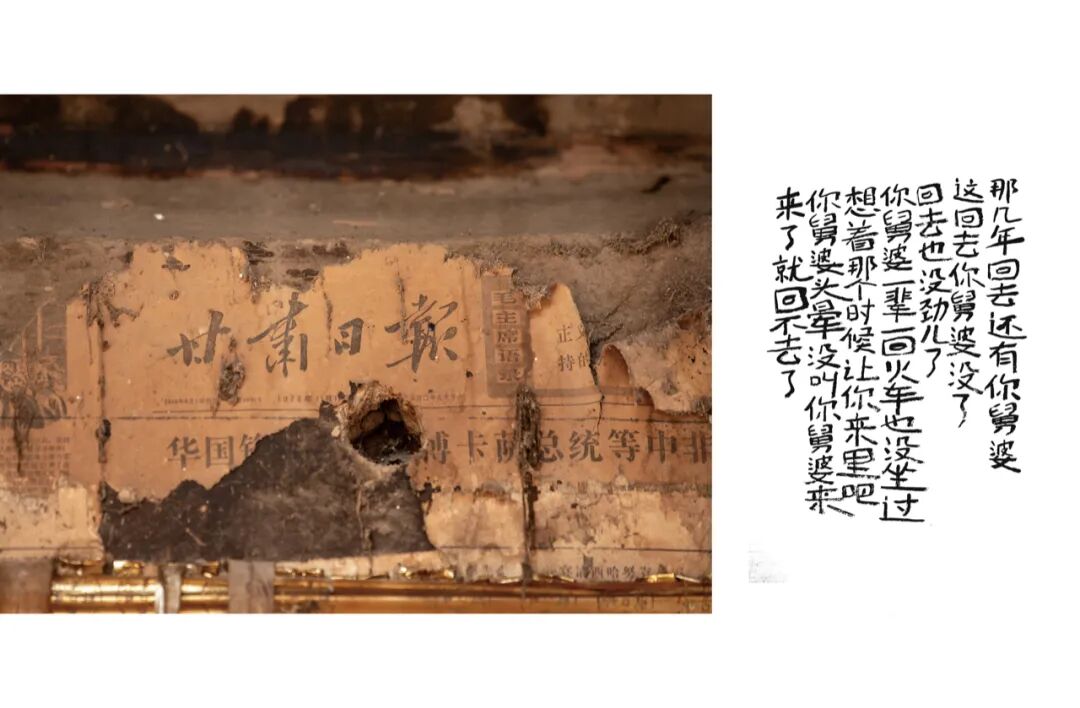 甘肅日報
毛主席语录
正
持的
华国 卡萨总统等中非
西哈努
那几年回去还有你舅婆
这回去你舅婆没了
回去也没劲儿了
你舅婆一辈一回火车也没坐过
想着那个时候让你来里吧
你舅婆头晕没叫你舅婆来
来了就回不去了